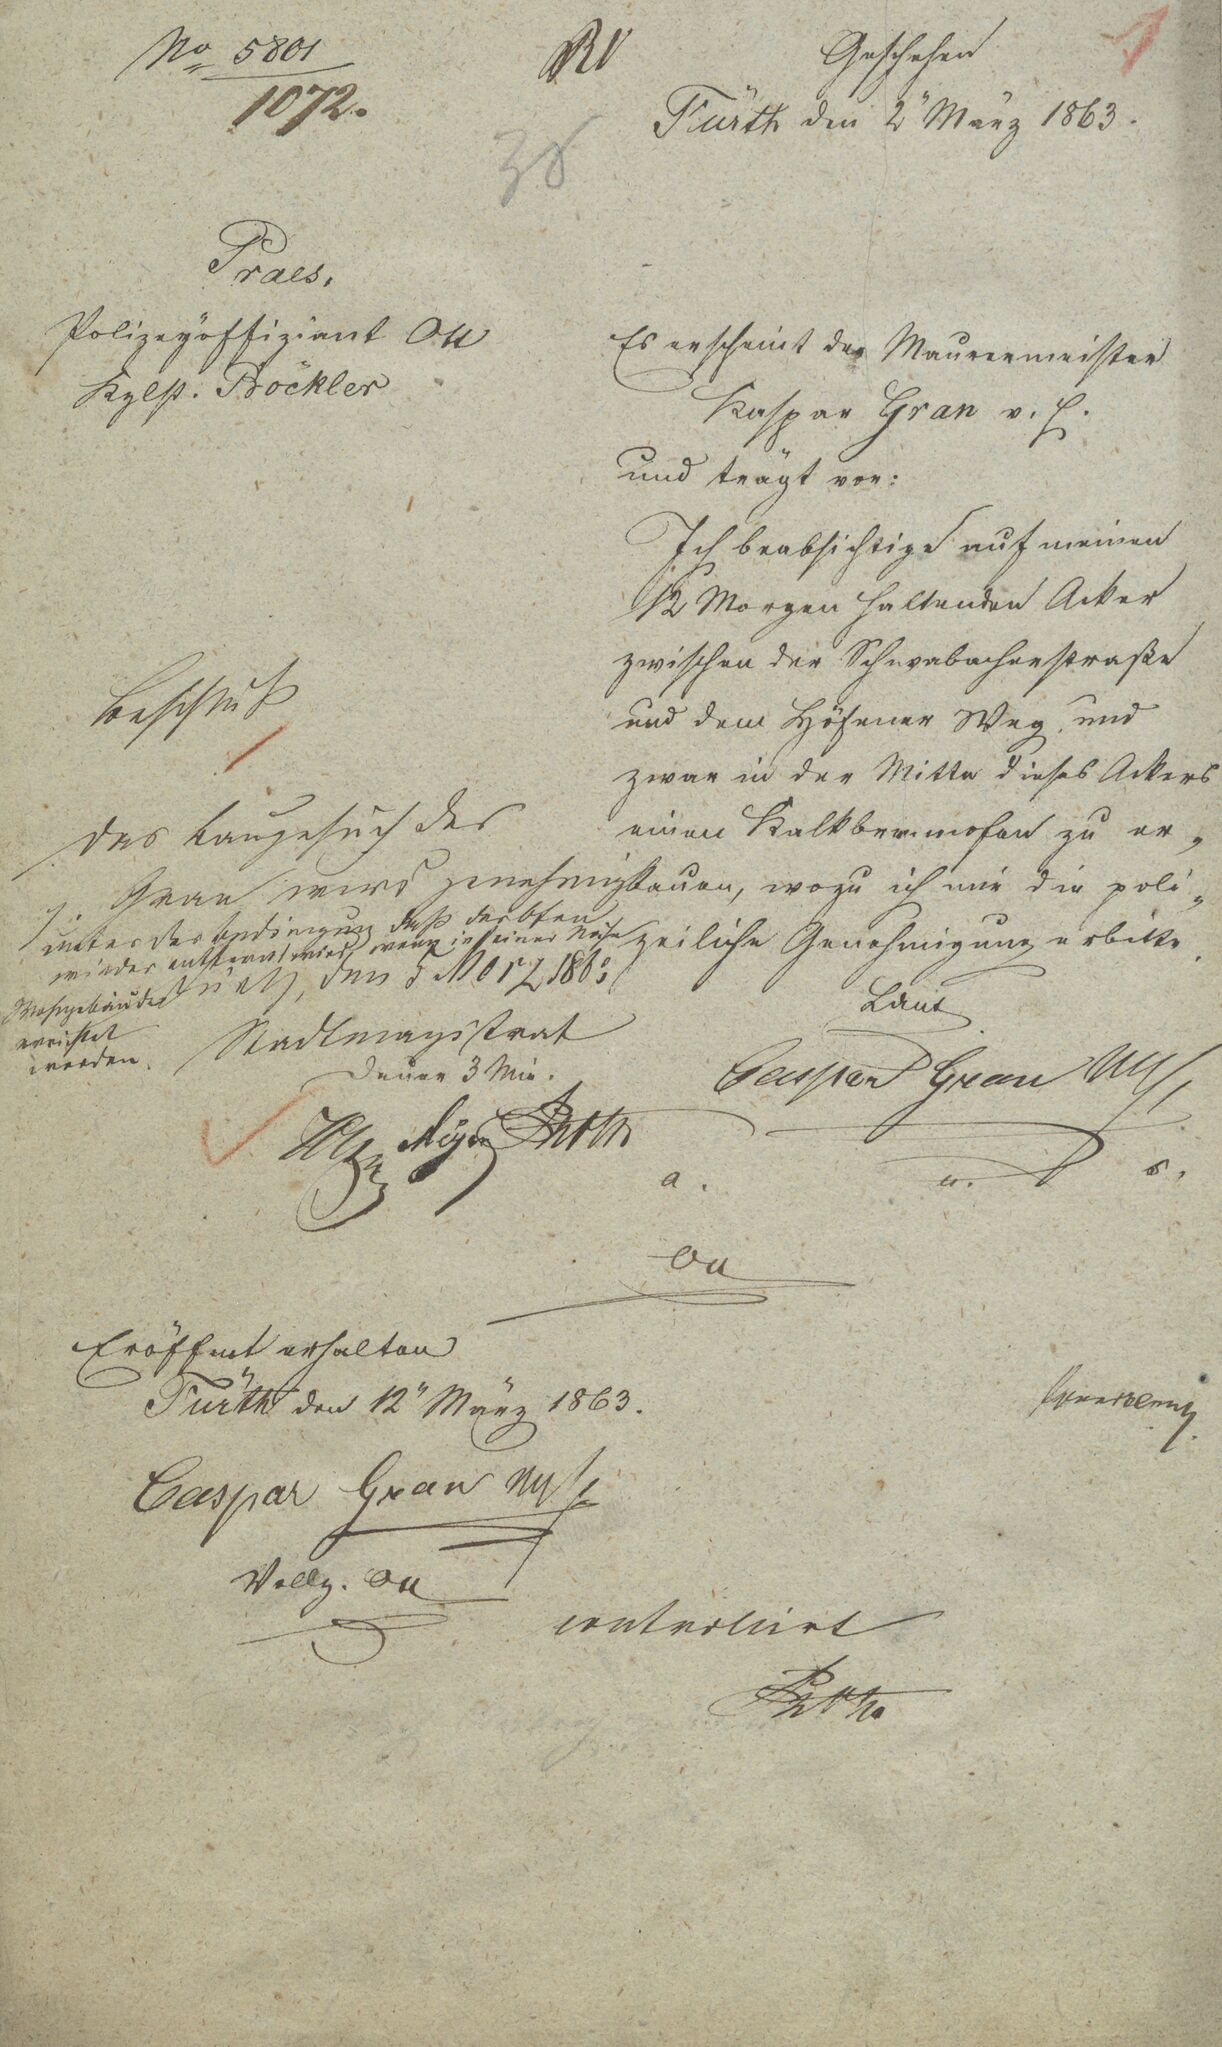 No 5801
1072.
RV
Geschehen
Fürth den 2" März 1863.
38
Praes.
Polizeyoffiziant Ott
Kglst. Böckler
Es erscheint der Maurermeister
Kaspar Gran v. h.
und trägt vor:
Ich beabsichtige auf meinen
12 Morgen haltenden Acker
zwischen der Schwabacherstraße
und dem Höfener Weg, und
zwar in der Mitte dieses Ackers
einen Kalkbrennofen zu er„
bauen, wozu ich mir die poli„
zeiliche Genehmigung erbitte.
Laut
Caspar Gran
a. u. s.
Ott
Beschluß
Das Baugesuch des
Gran wird genehmigt
unter der Bedingung daß der Ofen
wieder entfernt wird, wenn in seiner Nähe
Wohngebäude
errichtet
werden.
Fürth, den 5 März 1863
Stadtmagistrat
Dauer 3 Min.
Eröffnet erhalten
Fürth den 12" März 1863.
Caspar Gran
Vollzg. Ott
controllirt